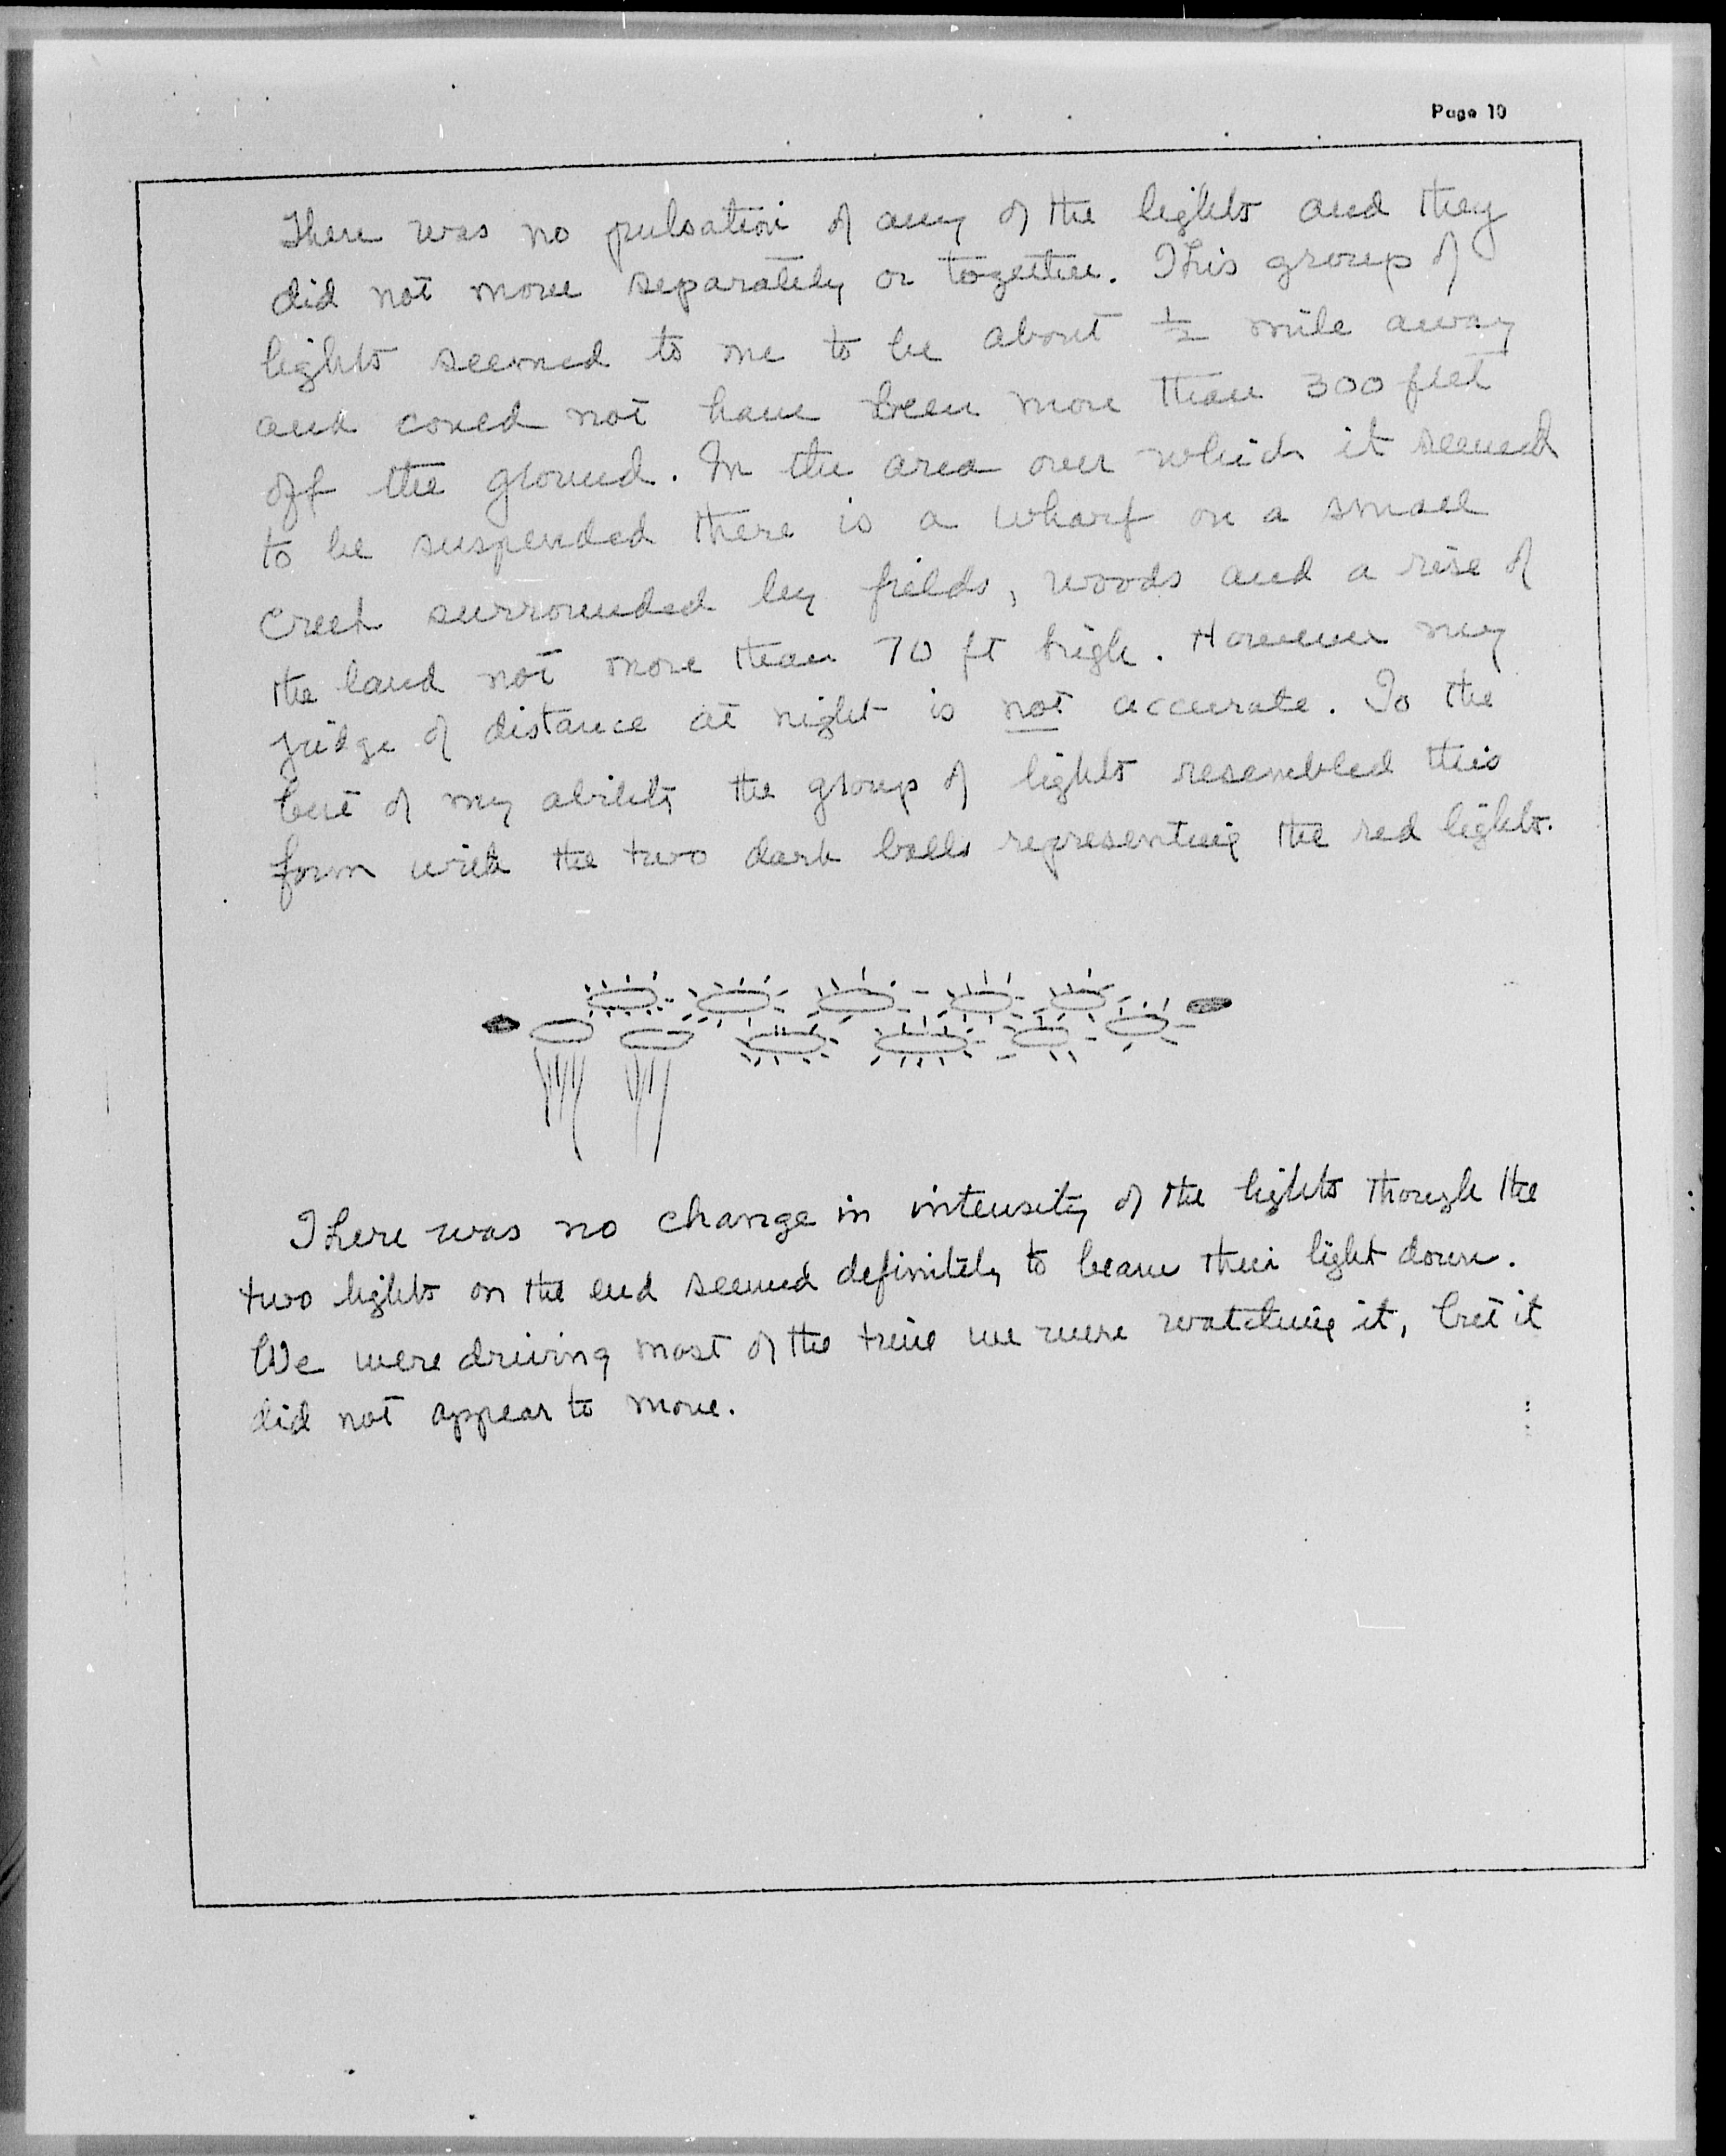 Page 10
There was no pulsation of any of the lights and they
did not move separately or together. This group of
lights seemed to me to be about ½ mile away
and could not have been more than 300 feet
off the ground. In the area over which it seemed
to be suspended there is a wharf on a small
creek surrounded by fields, woods and a rise of
the land not more than 70 ft high. However my
judge of distance at night is not accurate. To the
best of my ability the group of lights resembled this
form with the two dark balls representing the red lights.
There was no change in intensity of the lights though the
two lights on the end seemed definitely to beam their light down.
We were driving most of the time we were watching it, but it
did not appear to move.